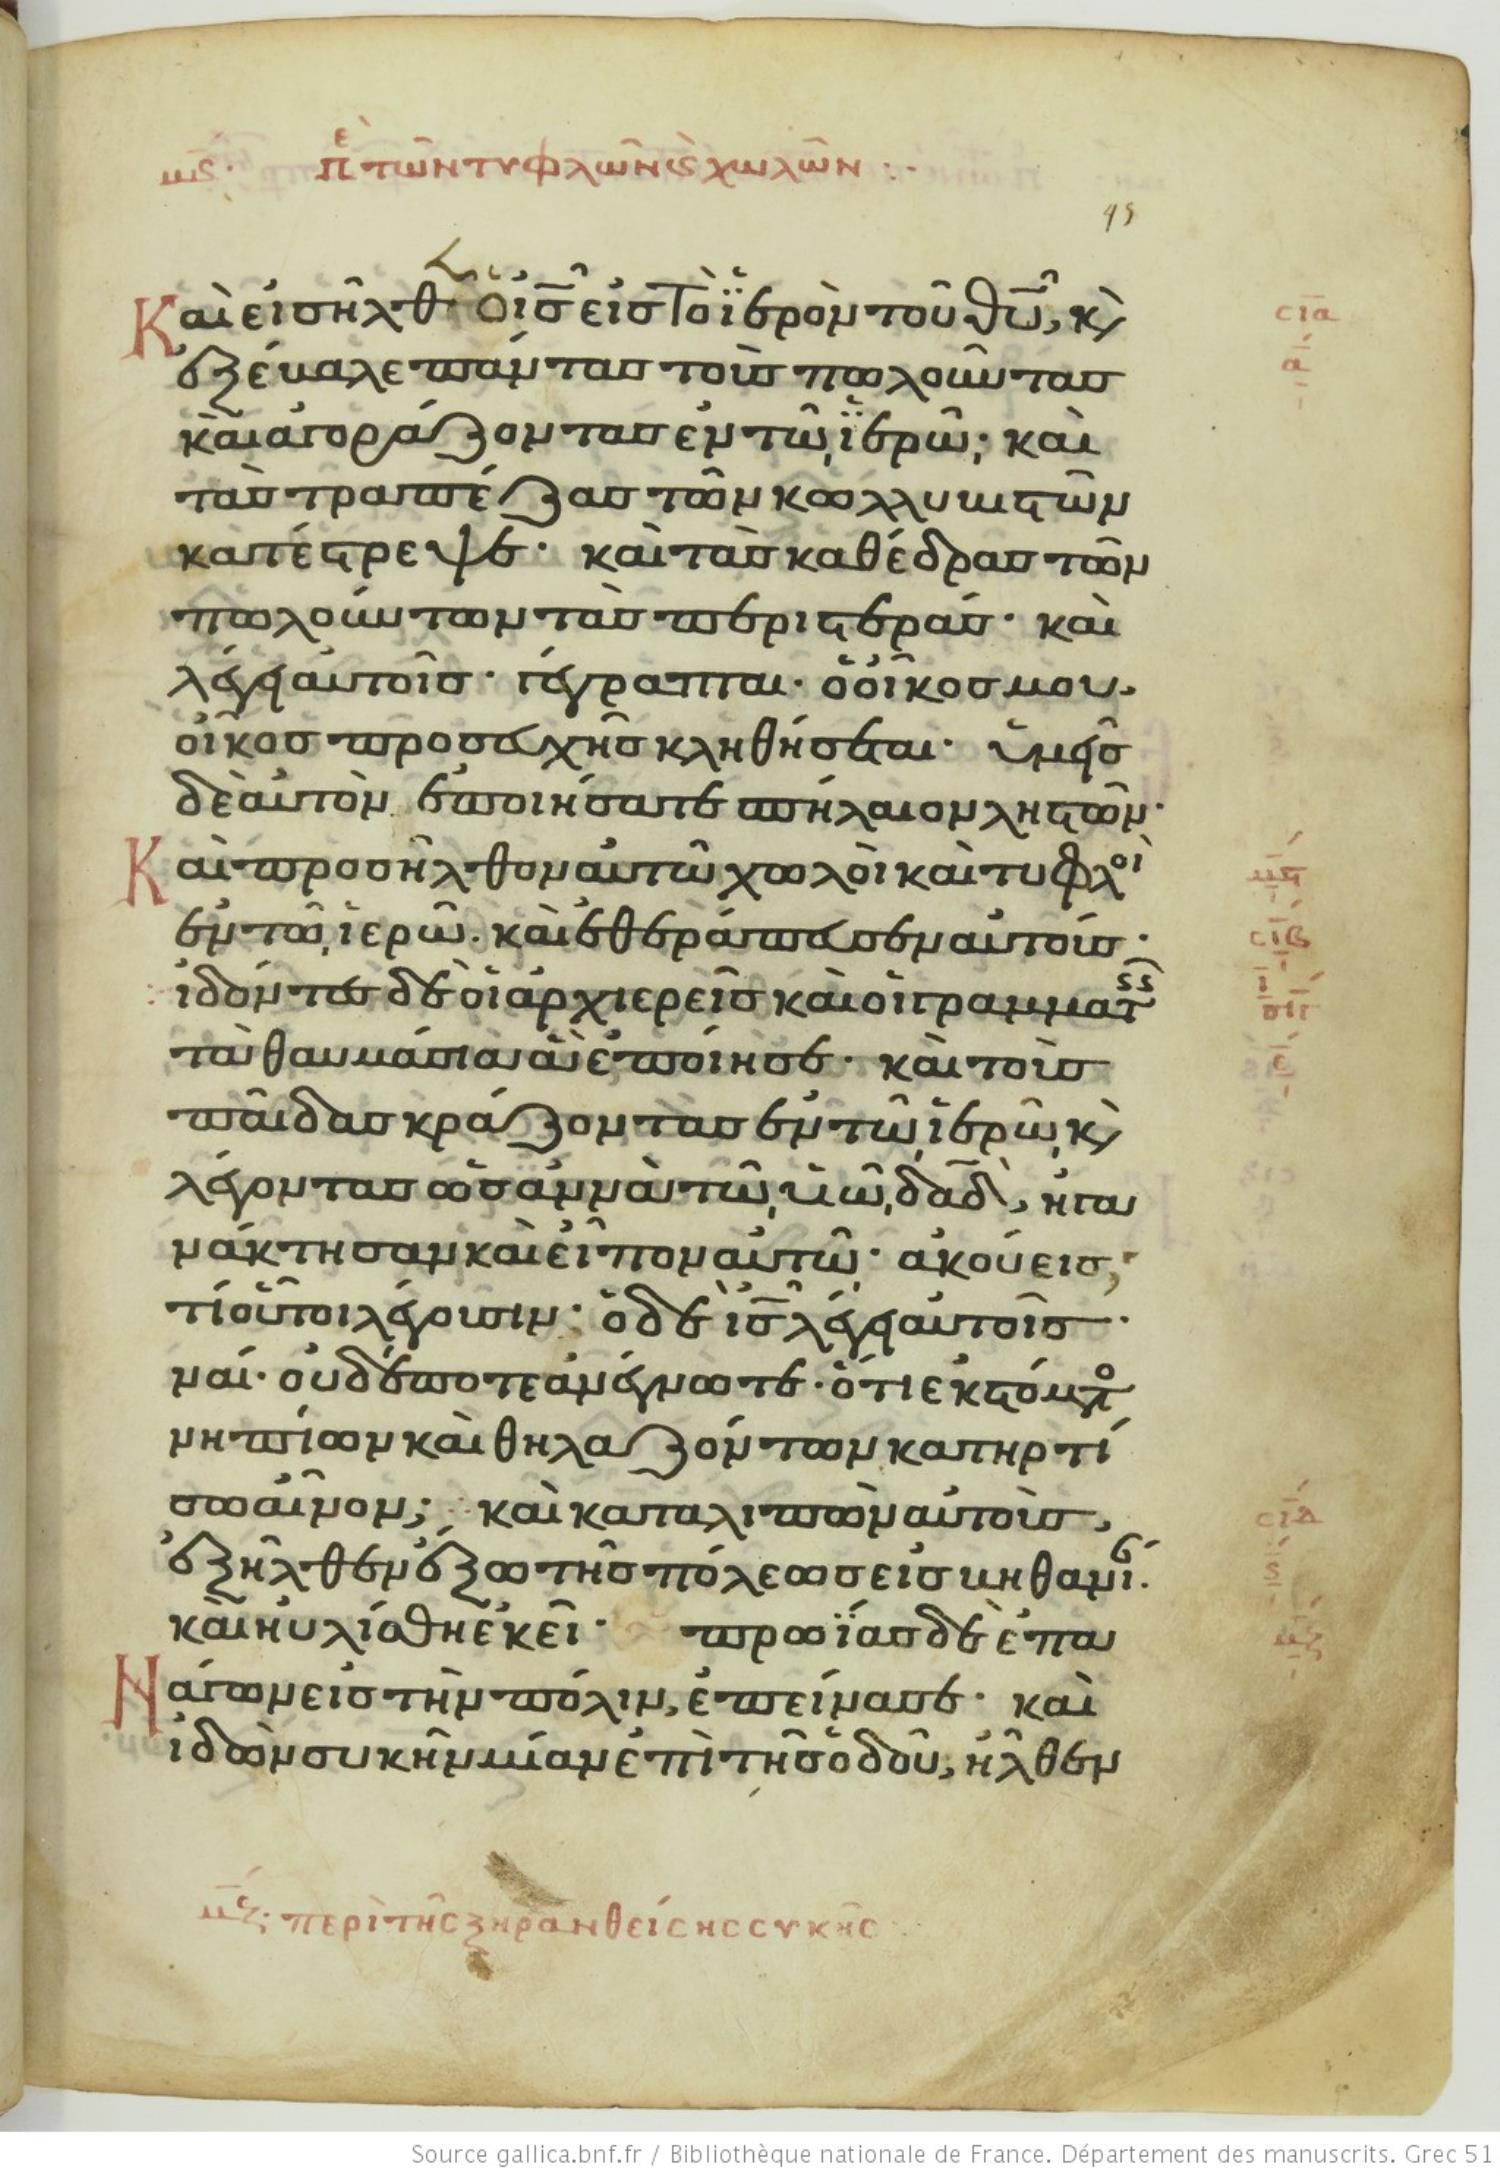 μϛ. πε τῶν τυφλῶν ϗ χωλῶν :·
95
Καὶ εἰσῆλθεν ὁ ις εἰς τὸ ἱερὸν τοῦ θυ, ϗ
ἐξέβαλε πάντας τοὺς πωλοῦντας
καὶ ἀγοράζοντας ἐν τῶ ἱερῶ· καὶ
τὰς τραπέζας τῶν κολλυβιστῶν
κατέστρεψε· καὶ τὰς καθέδρας τῶν
πωλούντων τὰς περιστεράς· καὶ
λέγει αὐτοῖς· γέγραπται· ὁ οἶκος μου,
οἶκος προσευχῆς κληθήσεται· ὑμεῖς
δὲ αὐτὸν ἐποιήσατε σπήλαιον ληστῶν·
Καὶ προσῆλθον αὐτῶ χωλοὶ καὶ τυφλοὶ
ἐν τῶ ἱερῶ. καὶ ἐθεράπευσεν αὐτούς·
ἰδόντες δὲ οἱ ἀρχιερεῖς καὶ οἱ γραμματ
τὰ θαυμάσια ἃ ἐποίησε· καὶ τοὺς
παῖδας κράζοντας ἐν τῶ ἱερῶ, ϗ
λέγοντας ὡσαννὰ τῶ υἱῶ δαδ, ἠγα
νάκτησαν καὶ εἶπον αὐτῶ· ἀκούεις,
τί οὗτοι λέγουσιν· ὁ δὲ ις λέγει αὐτοῖς·
ναί· οὐδέποτε ἀνέγνωτε· ὅτι ἐκ στόματο
νηπίων καὶ θηλαζόντων κατηρτί
σω αἶνον; καὶ καταλιπὼν αὐτοὺς,
ἐξῆλθεν ἔξω τῆς πόλεως εἰς βηθανί.
καὶ ηὐλίσθη ἐκεῖ· πρωΐας δὲ ἐπα
Νάγων εἰς τὴν πόλιν, ἐπείνασε· καὶ
ἰδὼν συκῆν μίαν ἐπὶ τῆς ὁδοῦ, ἦλθεν
μζ· περὶ τῆς ξηρανθείσης συκῆς
σια
α
μϛ
σιβ
ι
σιγ
ε
σιδ
ϛ
μζ
Source gallica.bnf.fr / Bibliothèque nationale de France. Département des manuscrits. Grec 51